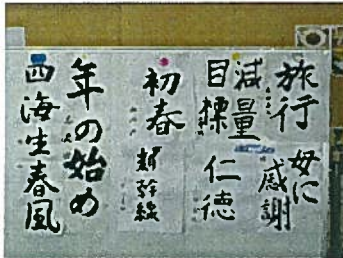 旅行
母に
感謝
減量
目標
仁徳
初春
新幹線
年の始め
四海生春風